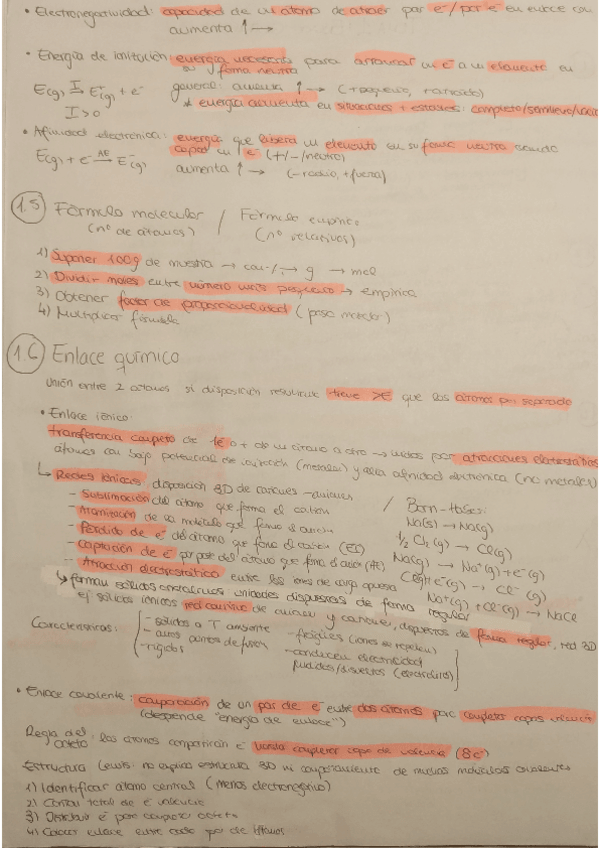 • Electronegatividad: capacidad de un átomo de atraer par e⁻/par e⁻ en enlace con
aumenta ↑ →
• Energía de ionización: energía necesaria para arrancar un e⁻ a un elemento en
su forma neutra
E(g) I→ E⁺(g) + e⁻ general: aumenta ↑ → (+pequeño, +atraído)
I>0 * energía aumenta en situaciones + estables: completo/semilleno/vacío
• Afinidad electrónica: energía que libera un elemento en su forma neutra cuando
capta un e⁻ (+/-/neutro)
E(g) + e⁻ AE→ E⁻(g) aumenta ↑ → (-radio, +fuerza)
1.5 Fórmula molecular / Fórmula empírica
(nº de átomos) (nº relativos)
1) Suponer 100g de muestra → → g → mol
2) Dividir moles entre número más pequeño → empírica
3) Obtener factor de proporcionalidad (peso molecular)
4) Multiplicar fórmula
1.6 Enlace químico
Unión entre 2 átomos si disposición resultante tiene >E que los átomos por separado
• Enlace iónico:
transferencia completa de 1e⁻ o + de un átomo a otro → unidos por atracciones electrostáticas
átomos con bajo potencial de ionización (metales) y alta afinidad electrónica (no metales)
↳ Redes iónicas: disposición 3D de cationes-aniones / Born-Haber:
- Sublimación del átomo que forma el catión Na(s) → Na(g)
- Atomización de la molécula que forma el anión ½ Cl₂(g) → Cl(g)
- Pérdida de e⁻ del átomo que forma el catión (EI) Na(g) → Na⁺(g) + e⁻(g)
- Captación de e⁻ por parte del átomo que forma el anión (AE) Cl(g) + e⁻(g) → Cl⁻(g)
- Atracción electrostática entre los iones de carga opuesta Na⁺(g) + Cl⁻(g) → NaCl
↳ forman sólidos unidades dispuestas de forma regular
ej sólidos iónicos red cristalina de aniones y cationes, dispuestos de forma regular, red 3D
Características: - sólidos a T ambiente - frágiles (iones se repelen)
- altos puntos de fusión - conducen electricidad
- rígidos fundidos/disueltos
• Enlace covalente: compartición de un par de e⁻ entre dos átomos para completar capas valencia
(desprende "energía de enlace")
Regla del octeto: los átomos compartirán e⁻ hasta completar capa de valencia (8e⁻)
Estructura Lewis: no explica estructura 3D ni comportamiento de muchas moléculas covalentes
1) Identificar átomo central (menos electronegativo)
2) Contar total de e⁻ valencia
3) Distribuir e⁻ para completar octeto
4) Colocar enlace entre cada par de átomos